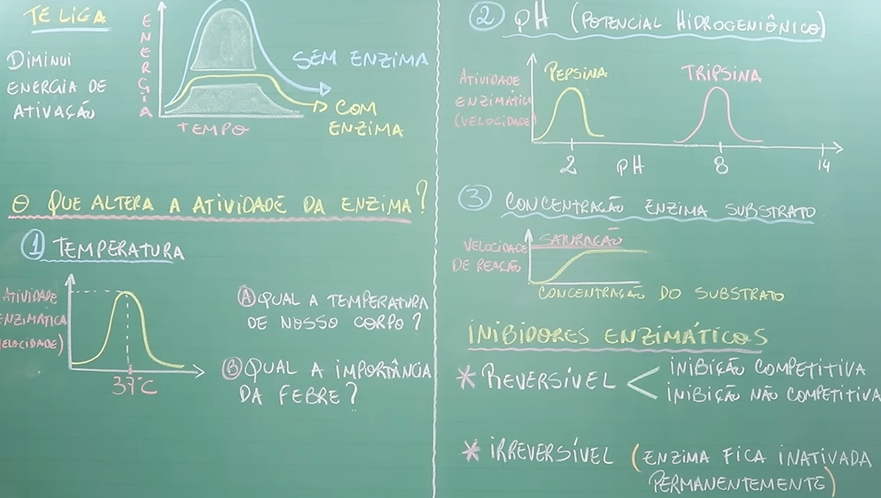 TE LIGA
DIMINUI
ENERGIA DE
ATIVAÇÃO
ENERGIA
SEM ENZIMA
COM
ENZIMA
TEMPO
O QUE ALTERA A ATIVIDADE DA ENZIMA?
1 TEMPERATURA
ATIVIDADE
ENZIMÁTICA
VELOCIDADE)
37°C
A QUAL A TEMPERATURA
DE NOSSO CORPO?
B QUAL A IMPORTÂNCIA
DA FEBRE?
2 PH (POTENCIAL HIDROGENIÔNICO)
ATIVIDADE
ENZIMÁTIC
(VELOCIDADE)
PEPSINA
TRIPSINA
2 PH 8 14
3 CONCENTRAÇÃO ENZIMA SUBSTRATO
VELOCIDADE
DE REAÇÃO
SATURAÇÃO
CONCENTRAÇÃO DO SUBSTRATO
INIBIDORES ENZIMÁTICOS
* REVERSÍVEL < INIBIÇÃO COMPETITIVA
INIBIÇÃO NÃO COMPETITIVA
* IRREVERSÍVEL (ENZIMA FICA INATIVADA
PERMANENTEMENTE)